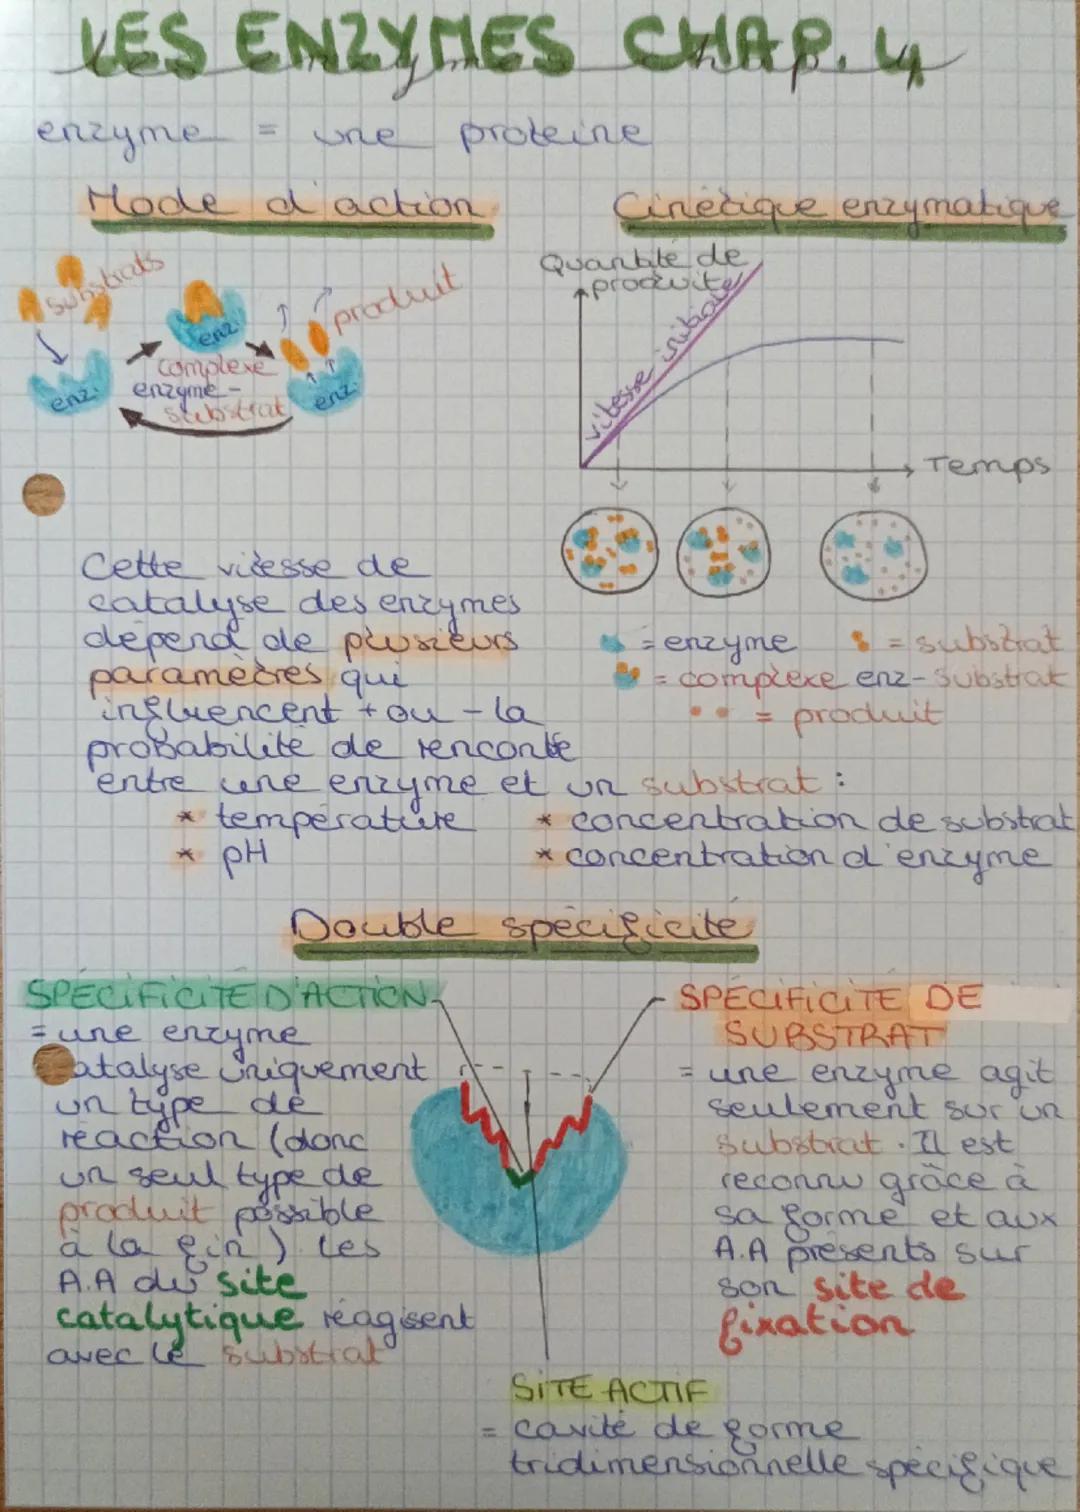 LES ENZYMES CHAP. 4
enzyme = une proteine
Mode d'action
Cinétique enzymatique
substrats
produit
enz.
enz.
enz.
complexe
enzyme -
substrat
Quantité de
produite
vitesse initiale
Temps
Cette vitesse de
catalyse des enzymes
dépend de plusieurs
paramètres qui
influencent + ou - la
probabilité de renconte
entre une enzyme et un substrat :
* température
* concentration de substrat
* pH
* concentration d'enzyme
= enzyme
= substrat
= complexe enz-substrat
= produit
Double spécificité
SPÉCIFICITÉ D'ACTION
= une enzyme
catalyse uniquement
un type de
réaction (donc
un seul type de
produit possible
à la fin). Les
A.A du site
catalytique réagisent
avec le substrat
SPÉCIFICITÉ DE
SUBSTRAT
= une enzyme agit
seulement sur un
substrat. Il est
reconnu grâce à
sa forme et aux
A.A présents sur
son site de
fixation
SITE ACTIF
= cavité de forme
tridimensionnelle spécifique